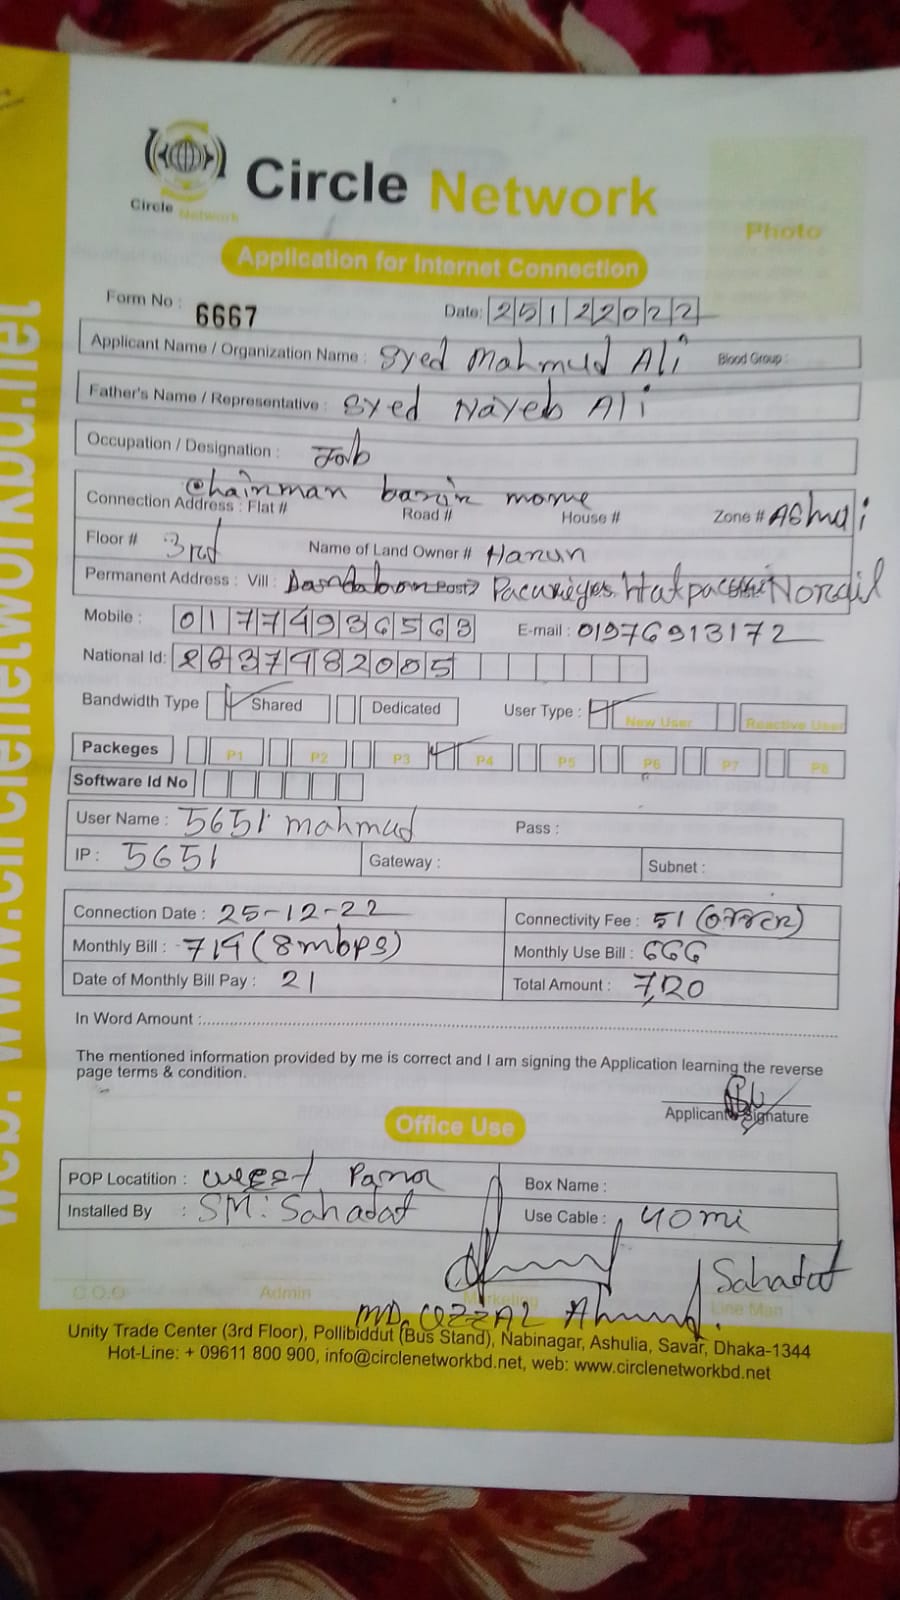 Circle Network
Circle Network
Photo
Application for Internet Connection
Form No : 6667 Date: 25122022
Applicant Name / Organization Name : Syed Mahmud Ali Blood Group :
Father's Name / Representative : Syed Nayeb Ali
Occupation / Designation : Job
Chainman bazir mome
Connection Address : Flat # Road # House # Zone #
Floor # 3rd Name of Land Owner # Harun
Permanent Address : Vill :
Mobile : 01774936563 E-mail : 01976913172
National Id: 2837982005
Bandwidth Type Shared Dedicated User Type : New User Reactive User
Packeges P1 P2 P3 P4 P5 P6 P7 P8
Software Id No
User Name : 5651 mahmud Pass :
IP : 5651 Gateway : Subnet :
Connection Date : 25-12-22 Connectivity Fee : 51
Monthly Bill : 719 (8mbps) Monthly Use Bill : 666
Date of Monthly Bill Pay : 21 Total Amount : 720
In Word Amount :
The mentioned information provided by me is correct and I am signing the Application learning the reverse
page terms & condition.
Applicant Signature
Office Use
POP Locatition : Box Name :
Installed By : SM: Sahadat Use Cable : 40 mi
Sahadat
C.O.O Admin Marketing Line Man
MD. Ahmed.
Unity Trade Center (3rd Floor), Pollibiddut (Bus Stand), Nabinagar, Ashulia, Savar, Dhaka-1344
Hot-Line: + 09611 800 900, info@circlenetworkbd.net, web: www.circlenetworkbd.net
web: www.circlenetworkbd.net